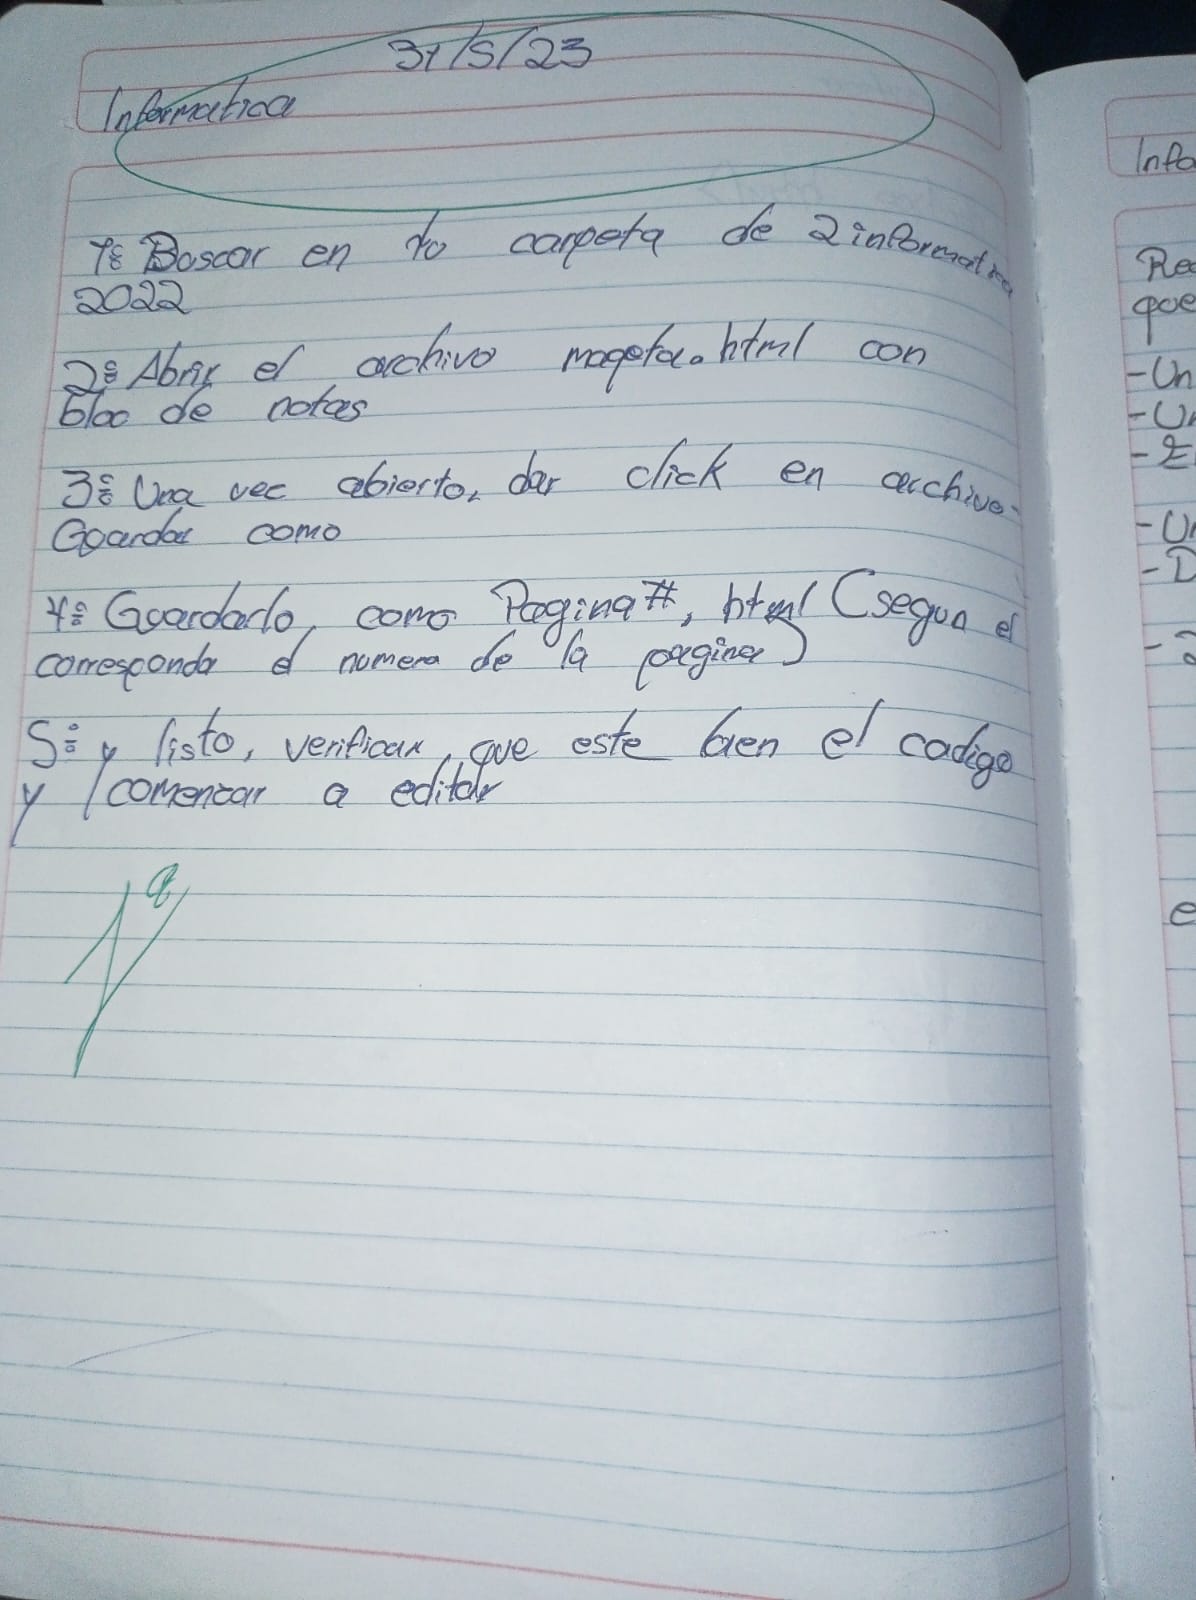 31/5/23
Informatica
1º: Buscar en tu carpeta de 2informatica
2022
2º: Abrir el archivo mageta.html con
bloc de notas
3º: Una vec abierto, dar click en archivo-
Guardar como
4º: Guardarlo, como Pagina#, html (segun el
corresponda el numero de la pagina)
5º: y listo, verificar, que este bien el codigo
y comenzar a editar
Info
Rec
que
-Un
-Un
-El
-Un
-D
-2
e